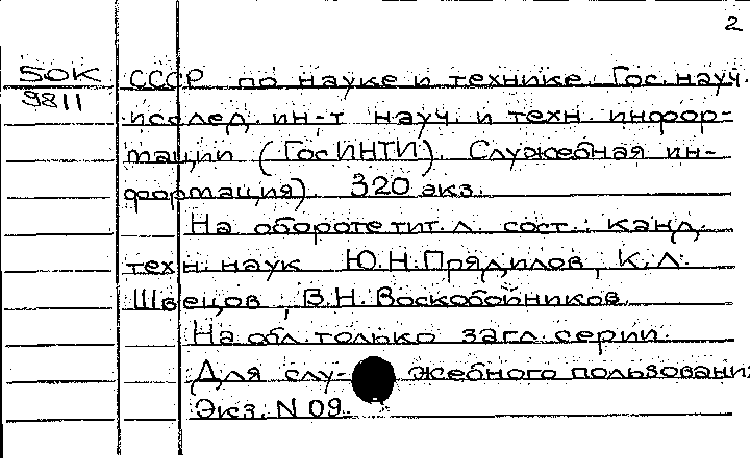 2
50К СССР по науке и технике. Гос. науч.
9811
исслед. ин-т науч. и техн. инфор-
мации (ГосИНТИ). Служебная ин-
формация). 320 экз.
На обороте тит. л. сост.: канд.
техн. наук Ю.Н. Прядилов, К.Л.
Швецов, В.Н. Воскобойников.
На обл. только загл. серии.
Для слу- жебного пользовани
Экз. N 09.